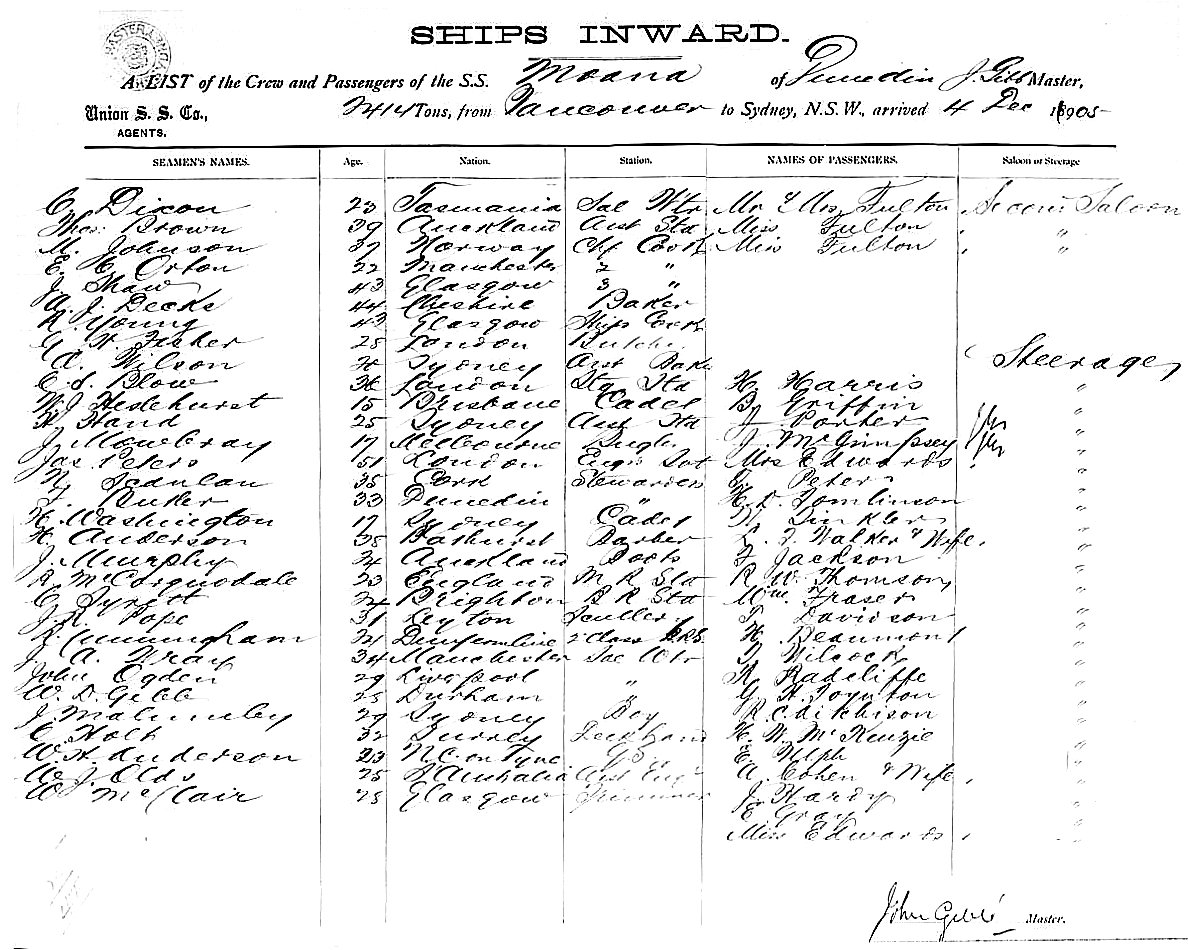 SHIPS INWARD.
A LIST of the Crew and Passengers of the S.S. Moana of Dunedin J. Gibb Master,
Union S. S. Co., 2414 Tons, from Vancouver to Sydney, N.S.W., arrived 4 Dec 1905
AGENTS.
SEAMEN'S NAMES. Age. Nation. Station. NAMES OF PASSENGERS. Saloon or Steerage
C. Dixon 23 Tasmania Sal Wtr Mr & Mrs Fulton Second Saloon
Thos. Brown 39 Auckland Asst Sta Miss Fulton "
M. Johnson 37 Norway Chf Cook Miss Fulton "
E. C. Orton 22 Manchester 2 "
J. Shaw 43 Glasgow 3 "
A. J. Decks 44 Cheshire Baker
R. Young 43 Glasgow Ships Cook
G. H. Fisher 28 London Butcher
A. Wilson Sydney Asst Baker Steerage
C. S. Blow 36 London Stg Sta H. Harris "
W. J. Heslehurst 15 Brisbane Cadet B. Griffin "
H. Hand 25 Sydney Asst Sta Porter "
J. Mowbray 17 Melbourne Bugler J. McGimpsey "
Jas. Peters 51 London Engrs Svt Mrs Edwards "
N. Scanlan 35 Cork Stewardess G. Peters "
F. Buker 33 Dunedin " H. D. Tomlinson "
H. Washington 17 Sydney Cadet W. Tinkler "
H. Anderson 38 Bathurst Barber L. F. Walker & Wife "
J. Murphy 24 Auckland Boots F. Jackson "
R. McCorquodale 23 England M R Sta R. W. Thomson "
C. Tyrett 24 Brighton B R Sta Wm. Fraser "
J. R. Pope 31 Leyton Sculley T. Davidson "
R. Cunningham 34 Dunfermline 2 Class H. Beaumont "
J. A. Wray 34 Manchester Sal Wtr Wilcock "
John Ogden 29 Liverpool " R. Radcliffe "
W. D. Gibb 25 Durham " G. H. Joynton "
J. Malumley 29 Sydney Boy R. C. Aitchison "
C. Holt 32 Surrey Deckhand H. W. McKenzie "
W. H. Anderson 23 N.C. on Tyne Do E. Ulph "
W. J. Olds 25 S. Australia Asst Eng A. Cohen & Wife "
W. McClair 28 Glasgow Trimmer J. Hardy "
E. Gray "
Miss Edwards "
John Gibb Master.